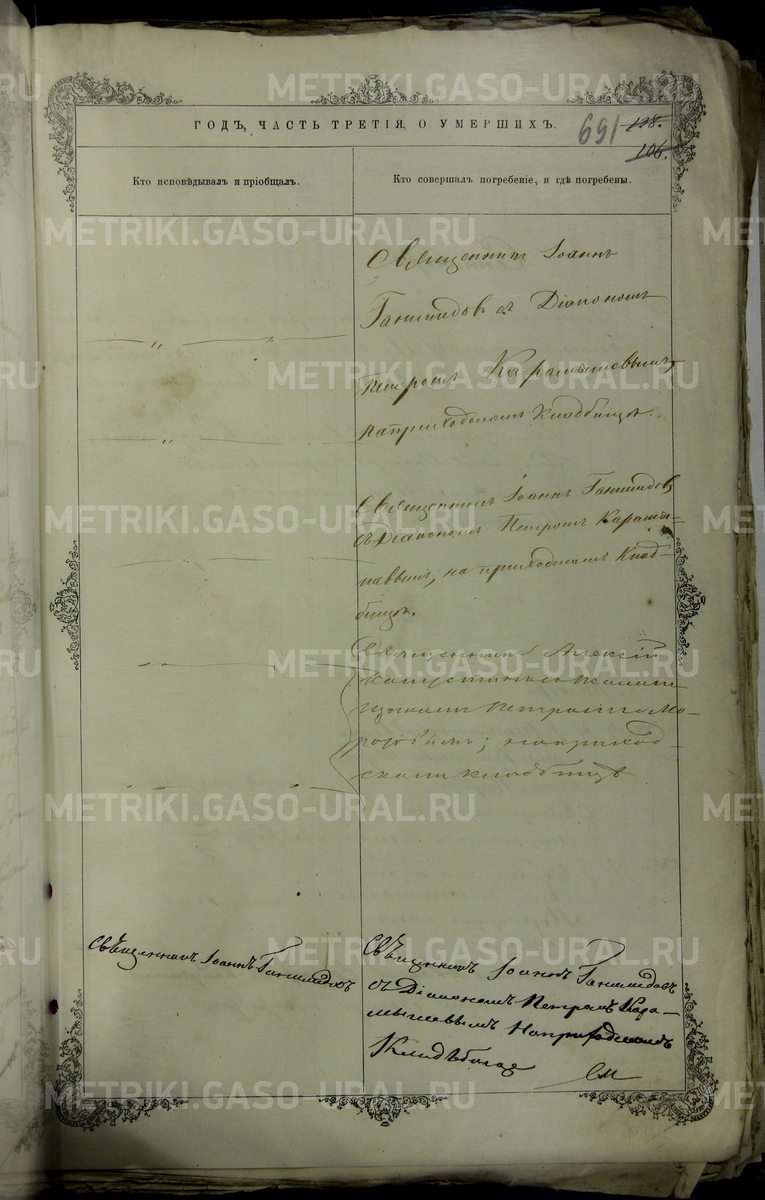 METRIKI.GASO-URAL.RU
ГОДЪ, ЧАСТЬ ТРЕТІЯ, О УМЕРШИХЪ.
691
118.
106.
Кто исповѣдывалъ и пріобщалъ.
Кто совершалъ погребеніе, и гдѣ погребены.
Священникъ Іоаннъ
съ Діакономъ
Петромъ Карамышевымъ
на приходскомъ Кладбищѣ.
Священникъ Іоаннъ
съ Діакономъ Петромъ Карамы-
шевымъ, на приходскомъ Клад-
бищѣ.
Священникъ Алексій
Петромъ Мо-
розовымъ; на приход-
скомъ кладбищѣ
Священникъ Іоаннъ
Священникъ Іоаннъ
съ Діакономъ Петромъ Кара-
мышевымъ На приходскомъ
Кладбищѣ